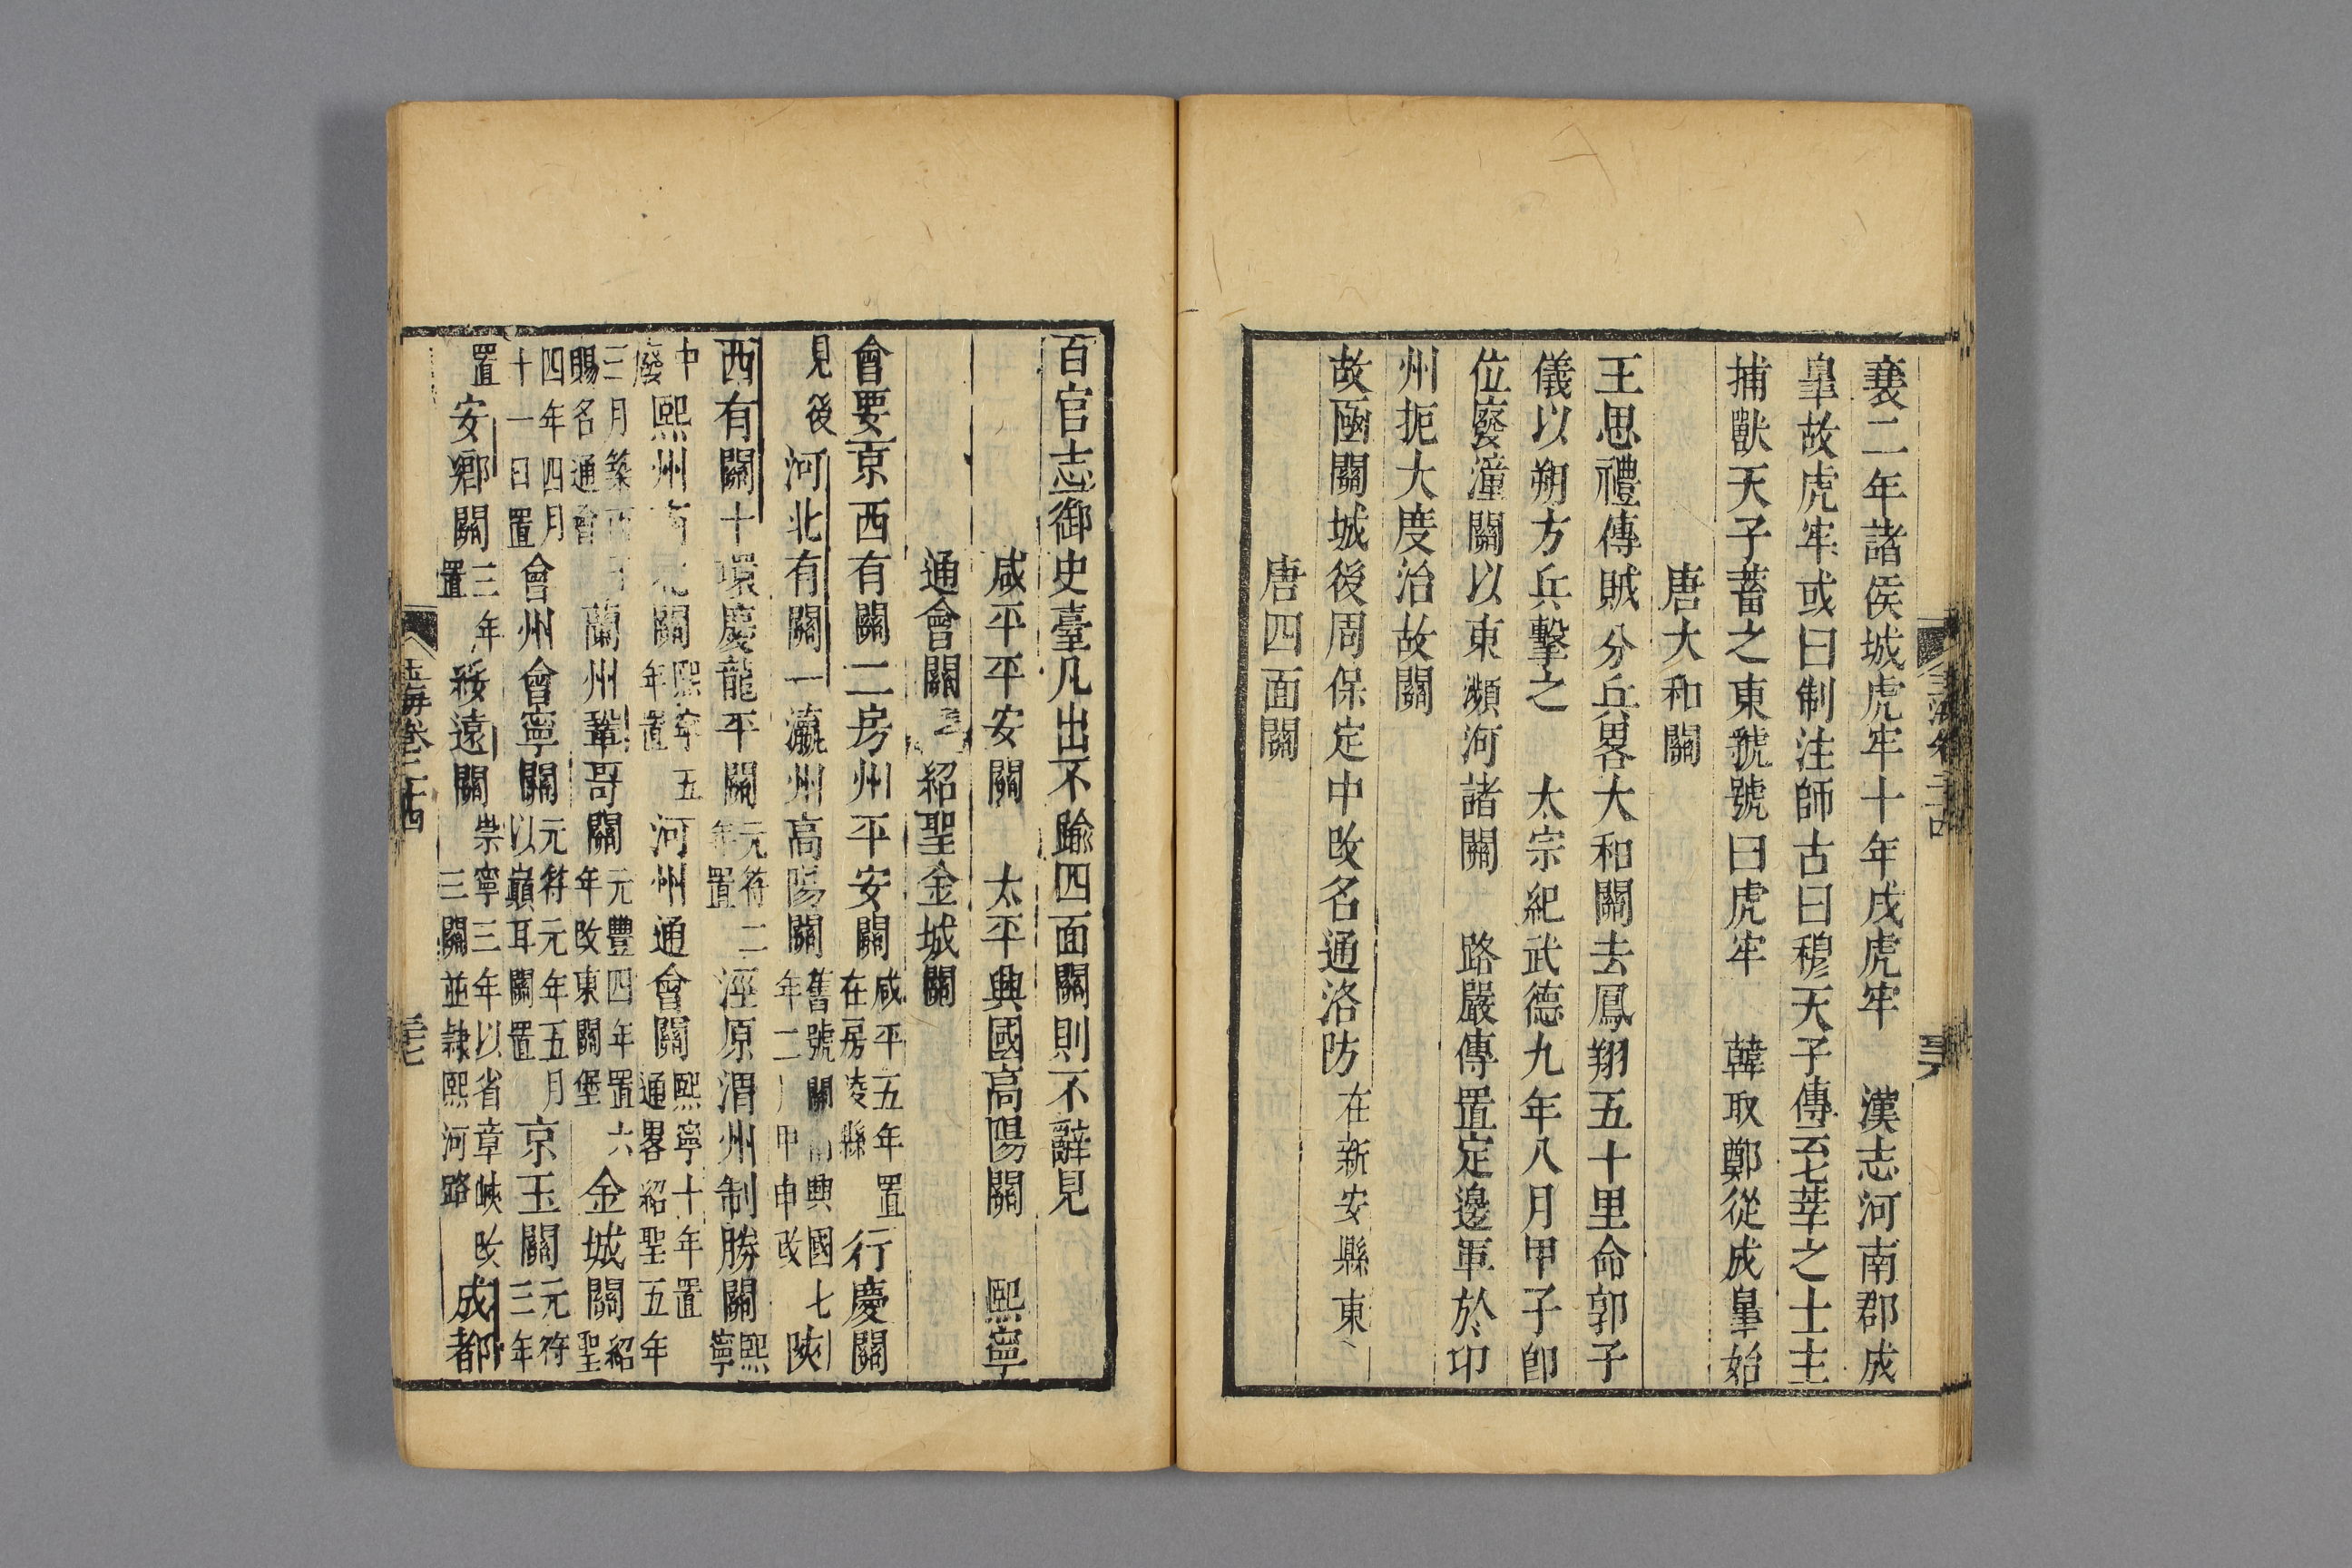 襄二年諸侯城虎牢十年戍虎牢　漢志河南郡成
皐故虎牢或曰制注師古曰穆天子傳云七萃之士生
捕獸天子畜之東虢號曰虎牢　韓取鄭從成皐始
唐大和關
王思禮傳賊分兵畧大和關去鳳翔五十里命郭子
儀以朔方兵擊之　太宗紀武德九年八月甲子卽
位廢潼關以東瀕河諸關　路嚴傳置定邊軍於卭
州扼大度治故關
故函關城後周保定中改名通洛防在新安縣東
唐四面關
玉海卷二十四
百官志御史臺凡出不踰四面關則不辭見
咸平平安關　太平興國高陽關　熙寧
通會關　紹聖金城關
會要京西有關二房州平安關咸平五年置
在房陵縣行慶關
見後河北有關一瀛州高陽關舊號關南興國七
年二月甲申改陝
西有關十環慶龍平關元符二
年置涇原渭州制勝關熙
寧
中
廢熙州南關熙寧五
年置河州通會關熙寧十年置
通畧紹聖五年
三月築
賜名通會蘭州鞏哥關元豐四年置六
年改東關堡金城關紹
聖
四年四月
十一日置會州會寧關元符元年五月
以巔耳關置京玉關元符
三年
置安鄉關三年
置綏遠關崇寧三年以省章峽改
三關並隸熙河路成都
玉海卷二十四